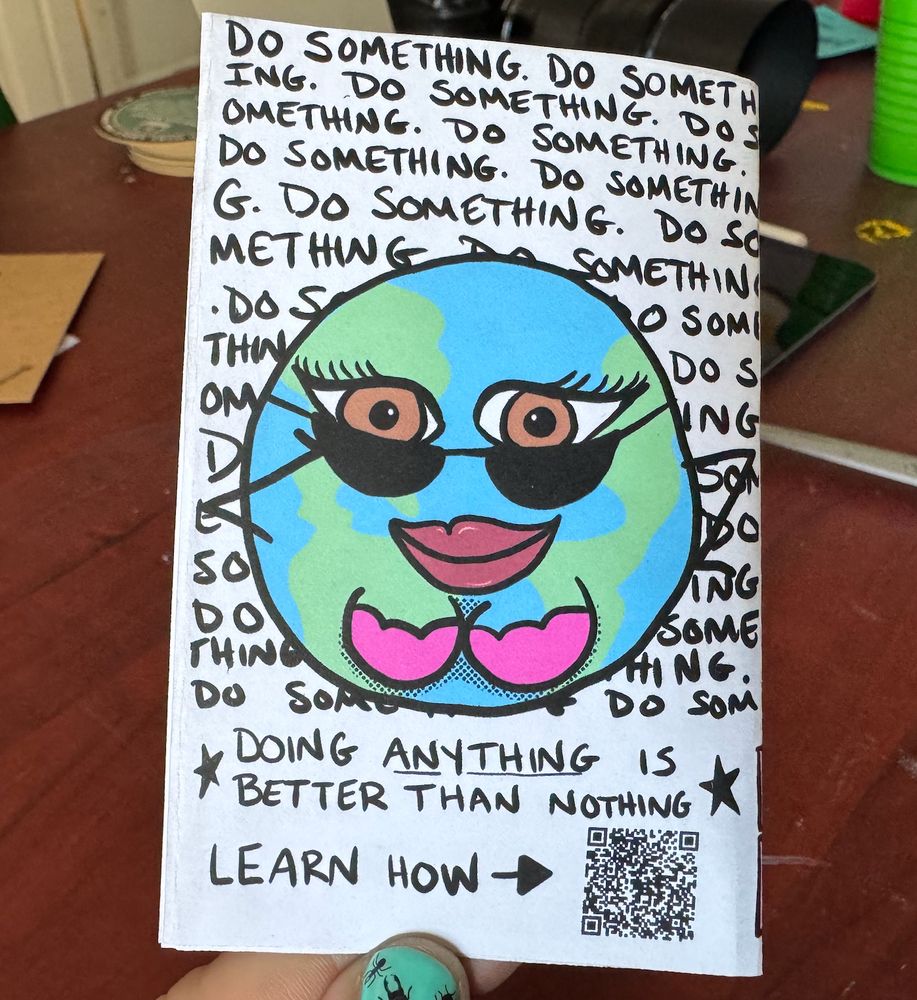 DO SOMETHING. DO SOMETH
ING. DO SOMETHING. DO S
OMETHING. DO SOMETHING.
DO SOMETHING. DO SOMETHIN
G. DO SOMETHING. DO SO
METHING. DO SOMETHING
.DO SO DO SOME
THIN DO S
OM ING
D SOM
DO
SO ING
DO SOME
THING THING.
DO SOM DO SOM
DOING ANYTHING IS
BETTER THAN NOTHING
LEARN HOW →